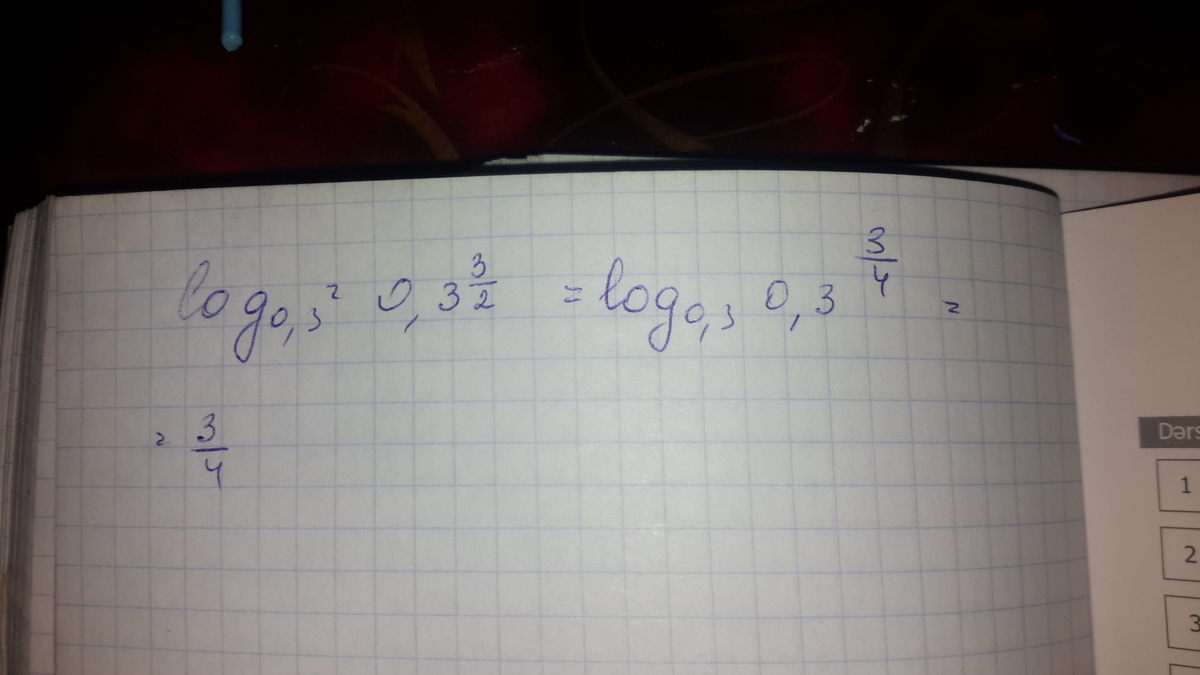 log_{0,3^2} 0,3^{\frac{3}{2}} = log_{0,3} 0,3^{\frac{3}{4}} =
= \frac{3}{4}
Dərs
1
2
3